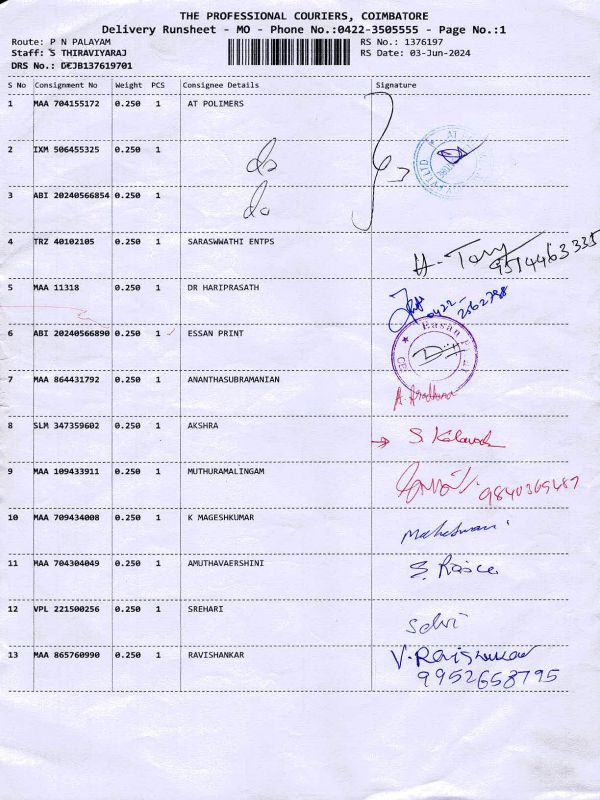 THE PROFESSIONAL COURIERS, COIMBATORE
Delivery Runsheet - MO - Phone No.:0422-3505555 - Page No.:1
Route: P N PALAYAM RS No.: 1376197
Staff: S THIRAVIYARAJ RS Date: 03-Jun-2024
DRS No.: DEJB137619701
S No Consignment No Weight PCS Consignee Details Signature
1 MAA 704155172 0.250 1 AT POLIMERS
2 IXM 506455325 0.250 1 do
3 ABI 20240566854 0.250 1 do
4 TRZ 40102105 0.250 1 SARASWWATHI ENTPS
9514463335
5 MAA 11318 0.250 1 DR HARIPRASATH
0422-2562798
6 ABI 20240566890 0.250 1 ESSAN PRINT
7 MAA 864431792 0.250 1 ANANTHASUBRAMANIAN
8 SLM 347359602 0.250 1 AKSHRA
9 MAA 109433911 0.250 1 MUTHURAMALINGAM
9840369487
10 MAA 709434008 0.250 1 K MAGESHKUMAR
11 MAA 704304049 0.250 1 AMUTHAVAERSHINI
12 VPL 221500256 0.250 1 SREHARI Selvi
13 MAA 865760990 0.250 1 RAVISHANKAR V. Ravishankar
9952658795